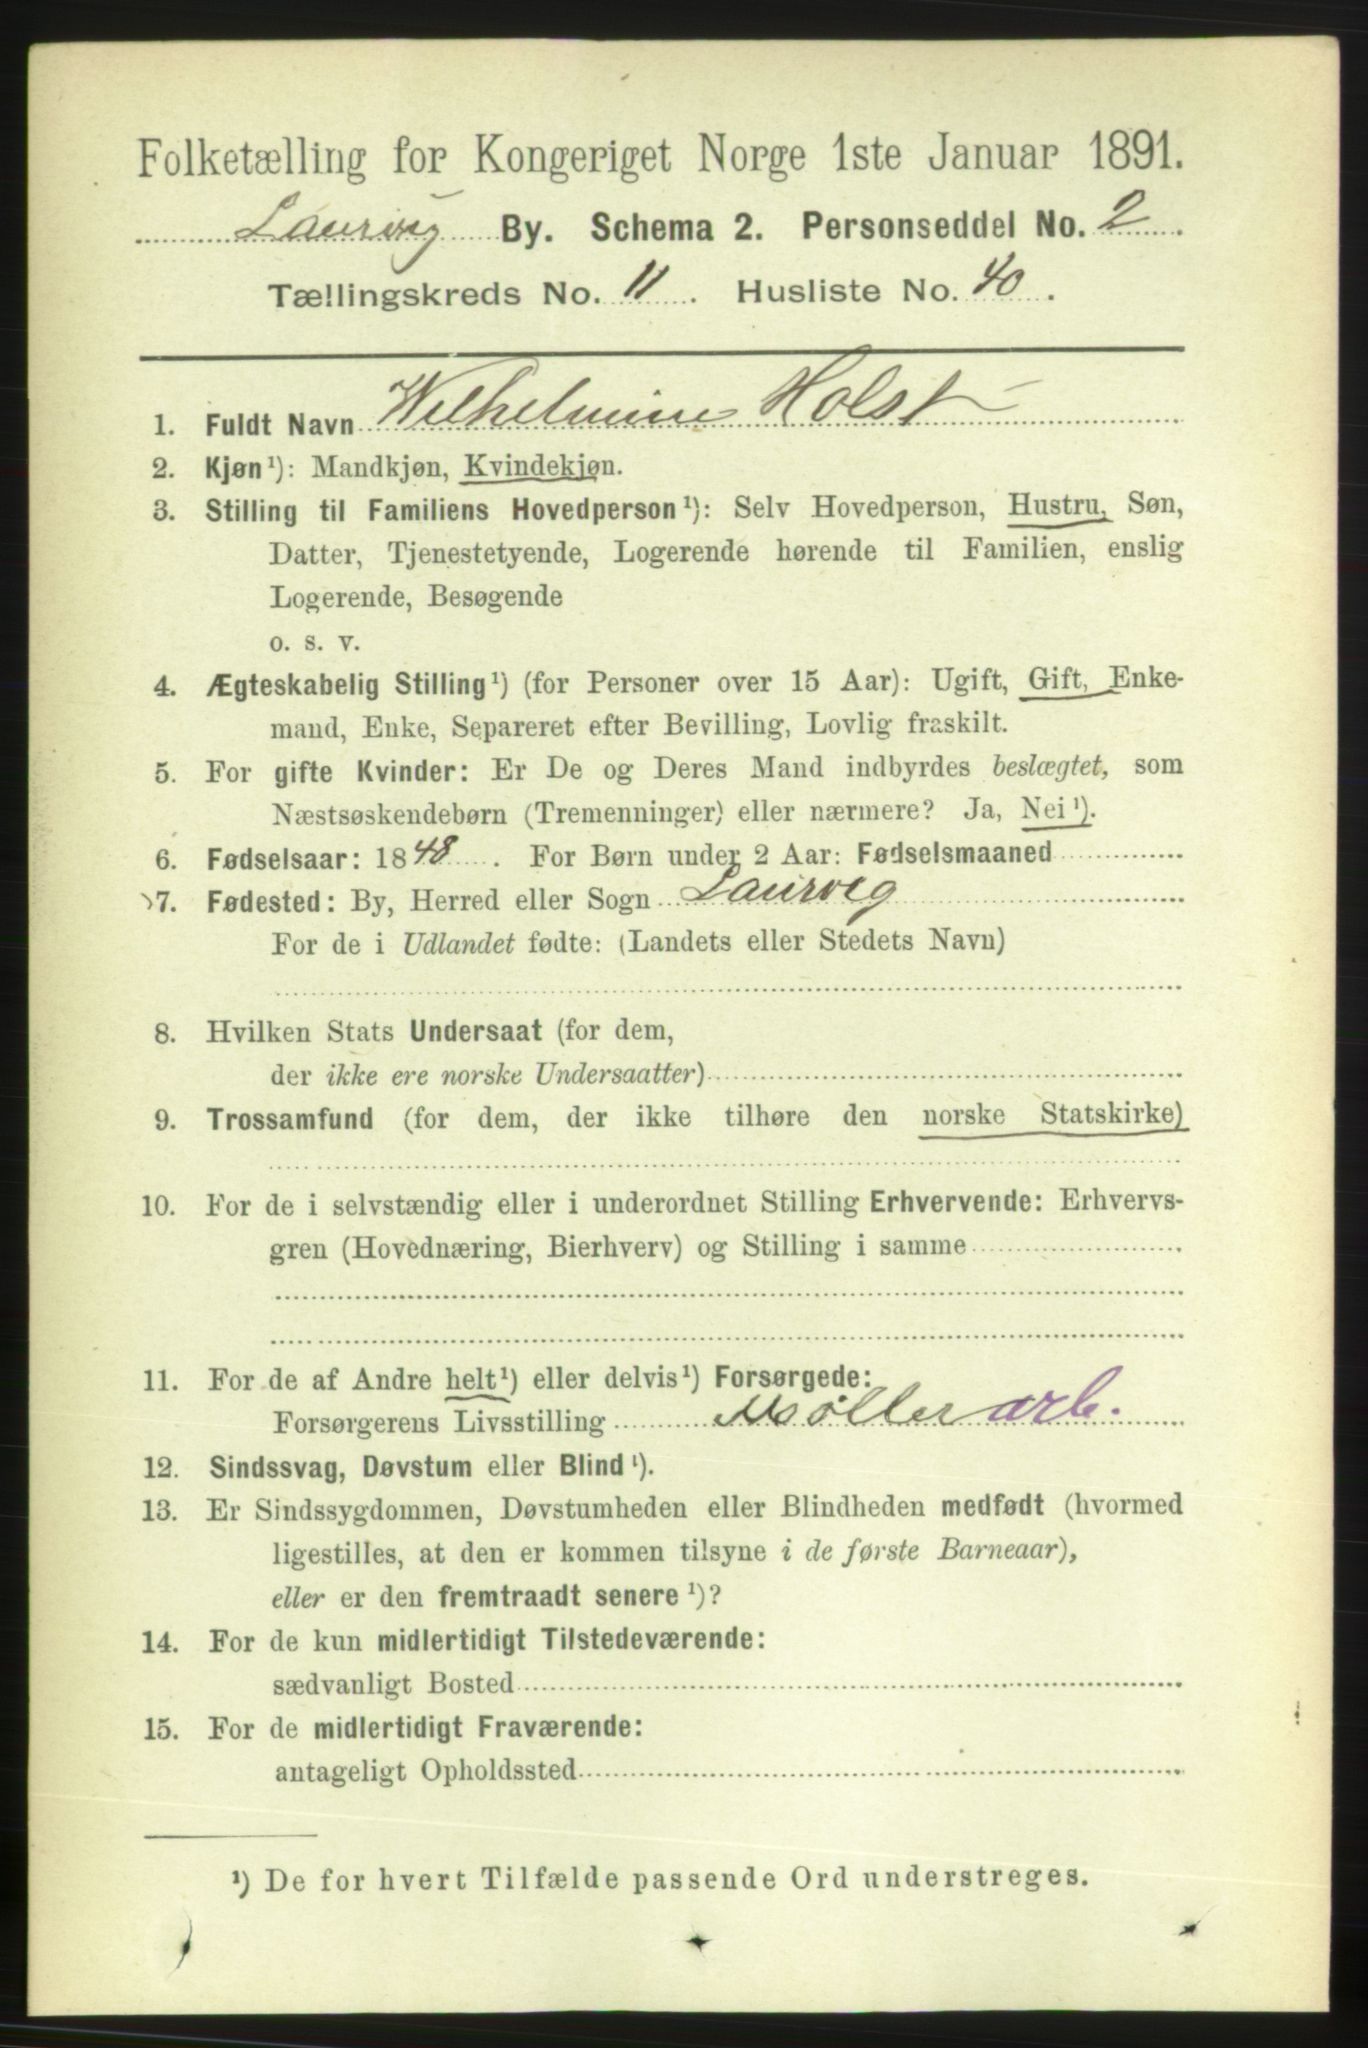 Folketælling for Kongeriget Norge 1ste Januar 1891.
Laurvig By. Schema 2. Personseddel No. 2.
Tællingskreds No. 11. Husliste No. 40.
1. Fuldt Navn Wilhelmine Holst
2. Kjøn¹): Mandkjøn, Kvindekjøn.
3. Stilling til Familiens Hovedperson¹): Selv Hovedperson, Hustru, Søn,
Datter, Tjenestetyende, Logerende hørende til Familien, enslig
Logerende, Besøgende
o. s. v.
4. Ægteskabelig Stilling¹) (for Personer over 15 Aar): Ugift, Gift, Enke-
mand, Enke, Separeret efter Bevilling, Lovlig fraskilt.
5. For gifte Kvinder: Er De og Deres Mand indbyrdes beslægtet, som
Næstsøskendebørn (Tremenninger) eller nærmere? Ja, Nei¹).
6. Fødselsaar: 1848. For Børn under 2 Aar: Fødselsmaaned
7. Fødested: By, Herred eller Sogn Laurvig
For de i Udlandet fødte: (Landets eller Stedets Navn)
8. Hvilken Stats Undersaat (for dem,
der ikke ere norske Undersaatter)
9. Trossamfund (for dem, der ikke tilhøre den norske Statskirke)
10. For de i selvstændig eller i underordnet Stilling Erhvervende: Erhvervs-
gren (Hovednæring, Bierhverv) og Stilling i samme
11. For de af Andre helt¹) eller delvis¹) Forsørgede:
Forsørgerens Livsstilling Møller arb.
12. Sindssvag, Døvstum eller Blind¹).
13. Er Sindssygdommen, Døvstumheden eller Blindheden medfødt (hvormed
ligestilles, at den er kommen tilsyne i de første Barneaar),
eller er den fremtraadt senere¹)?
14. For de kun midlertidigt Tilstedeværende:
sædvanligt Bosted
15. For de midlertidigt Fraværende:
antageligt Opholdssted
¹) De for hvert Tilfælde passende Ord understreges.